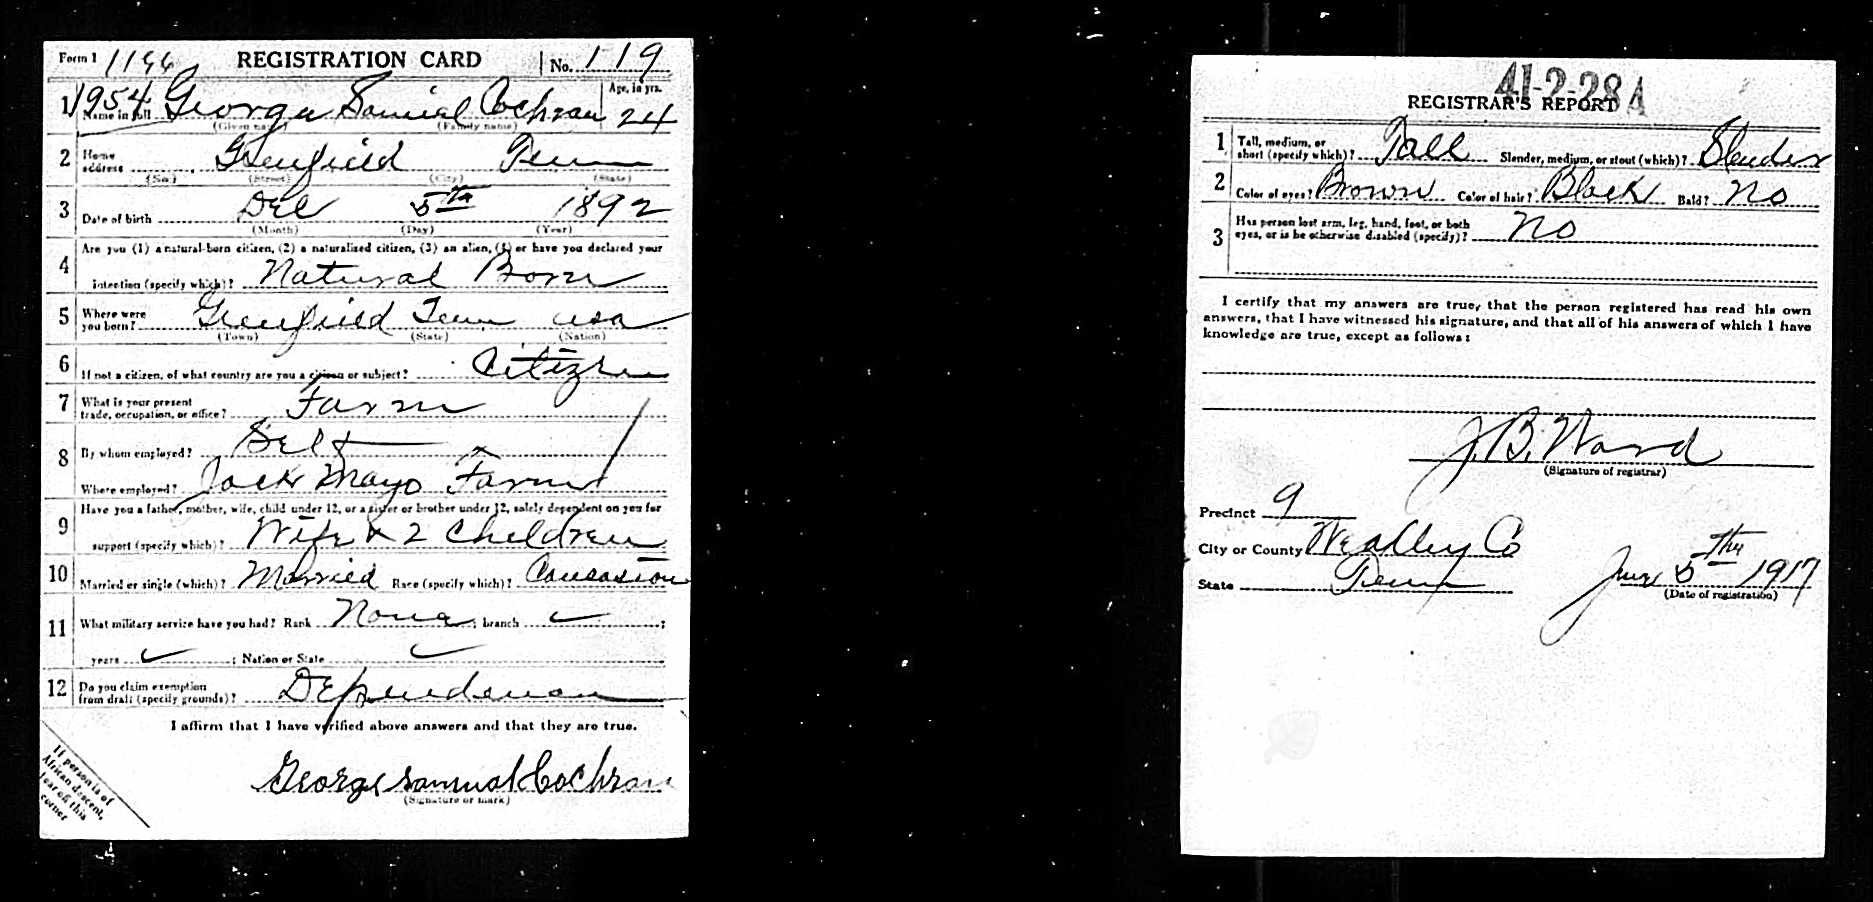 Form 1 1166 REGISTRATION CARD No. 119
1954 George Samuel Cochran Age, in yrs.
1 Name in full 24
(Given name) (Family name)
2 Home address Greenfield Tenn
(No.) (Street) (City) (State)
3 Date of birth Dec 5th 1892
(Month) (Day) (Year)
4 Are you (1) a natural-born citizen, (2) a naturalized citizen, (3) an alien, (4) or have you declared your
intention (specify which)? Natural Born
5 Where were you born? Greenfield Tenn usa
(Town) (State) (Nation)
6 If not a citizen, of what country are you a citizen or subject? Citizen
7 What is your present
trade, occupation, or office? Farm
8 By whom employed? Self
Where employed? Jack Mayo Farm
9 Have you a father, mother, wife, child under 12, or a sister or brother under 12, solely dependent on you for
support (specify which)? Wife & 2 Children
10 Married or single (which)? Married Race (specify which)? Caucasion
11 What military service have you had? Rank None ; branch ;
years ; Nation or State
12 Do you claim exemption
from draft (specify grounds)?
I affirm that I have verified above answers and that they are true.
George Samual Cochran
(Signature or mark)
If person is of
African descent,
tear off this
corner
41-2-28 A
REGISTRAR'S REPORT
1 Tall, medium, or
short (specify which)? Tall Slender, medium, or stout (which)? Slender
2 Color of eyes? Brown Color of hair? Black Bald? No
3 Has person lost arm, leg, hand, foot, or both
eyes, or is he otherwise disabled (specify)? No
I certify that my answers are true, that the person registered has read his own
answers, that I have witnessed his signature, and that all of his answers of which I have
knowledge are true, except as follows:
J. B. Ward
(Signature of registrar)
Precinct 9
City or County Weakley Co
State Tenn June 5th 1917
(Date of registration)